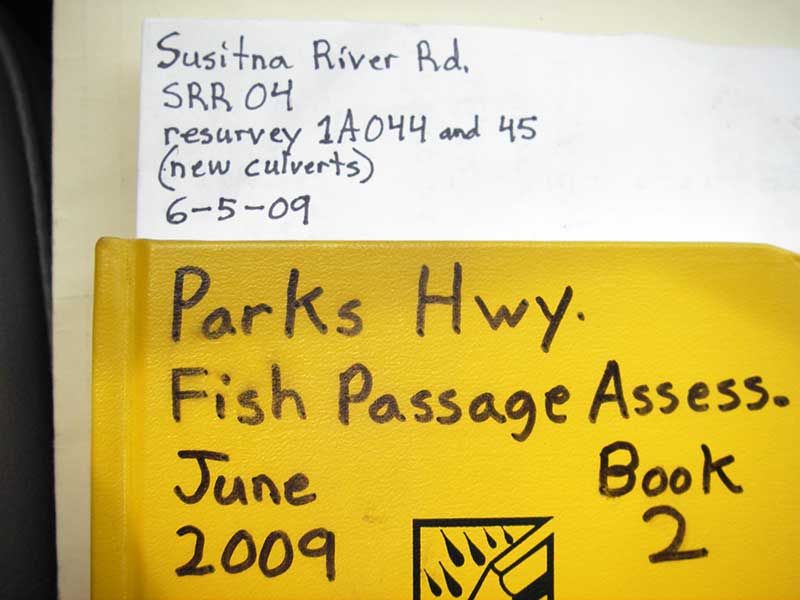 Susitna River Rd.
SRR 04
resurvey 1A044 and 45
(new culverts)
6-5-09
Parks Hwy.
Fish Passage Assess.
June Book
2009 2